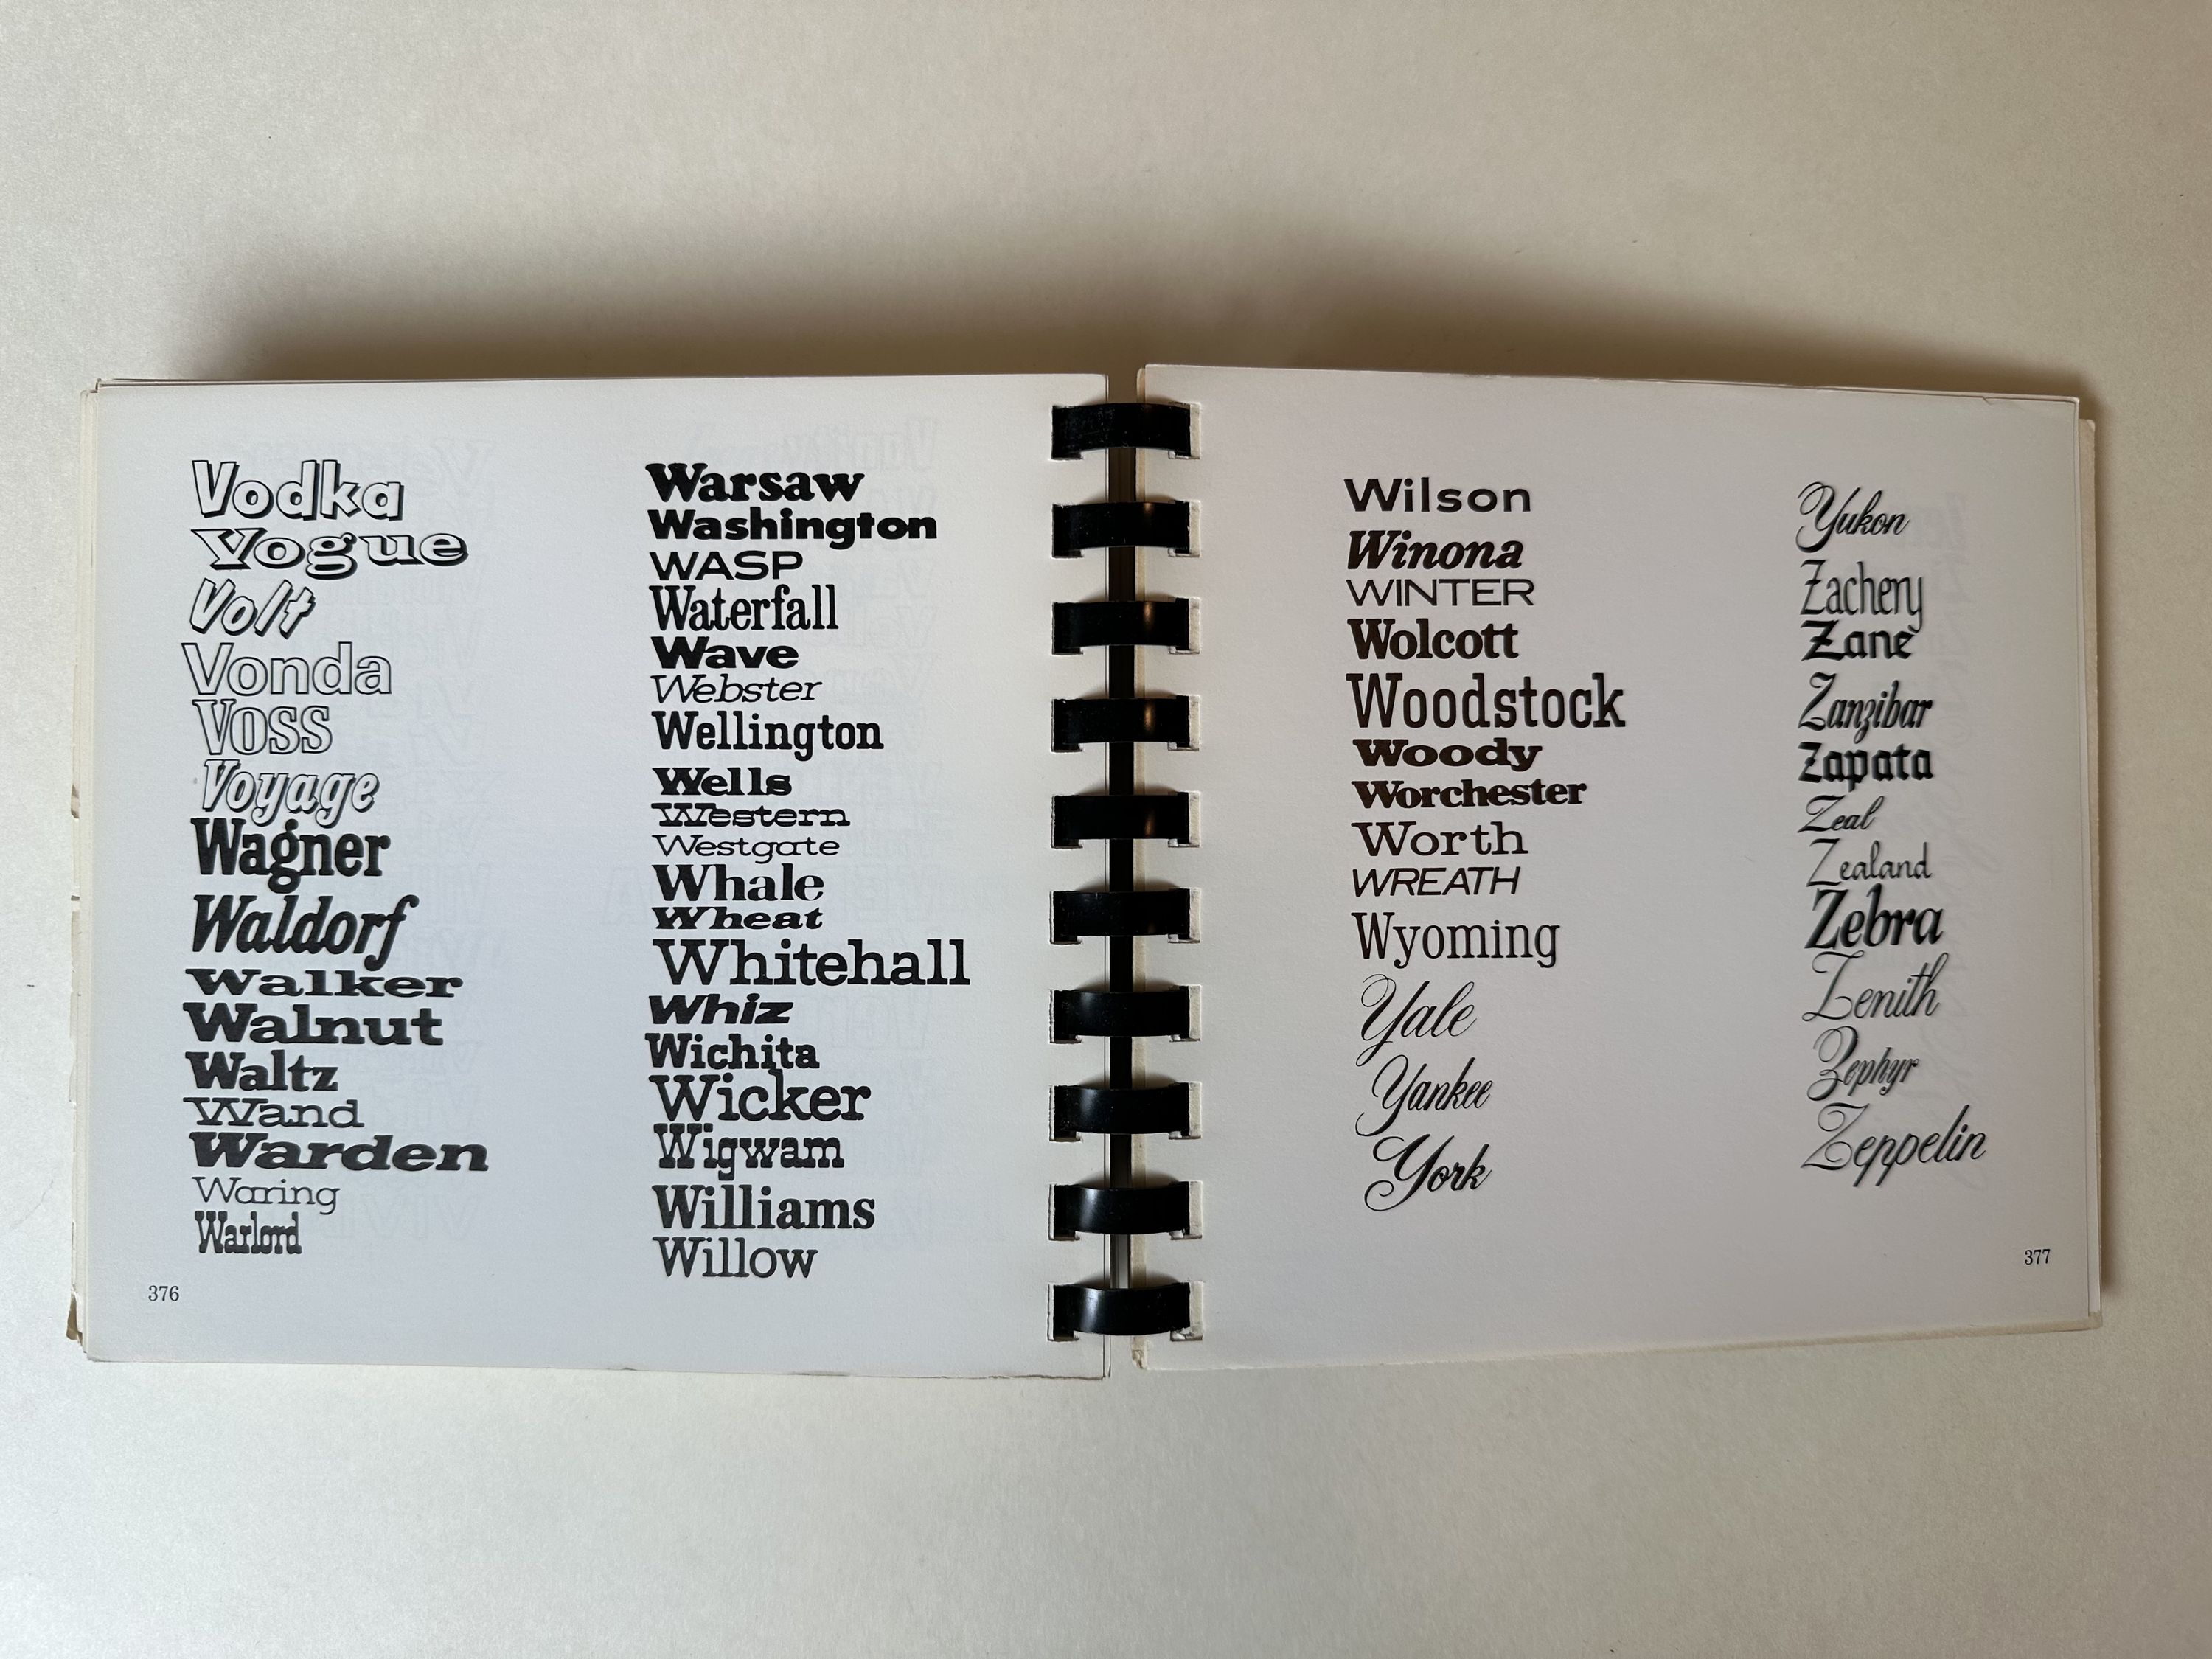 Vodka
Vogue
Volt
Vonda
Voss
Voyage
Wagner
Waldorf
Walker
Walnut
Waltz
Wand
Warden
Waring
Warlord
376
Warsaw
Washington
WASP
Waterfall
Wave
Webster
Wellington
Wells
Western
Westgate
Whale
Wheat
Whitehall
Whiz
Wichita
Wicker
Wigwam
Williams
Willow
Wilson
Winona
WINTER
Wolcott
Woodstock
Woody
Worchester
Worth
WREATH
Wyoming
Yale
Yankee
York
Yukon
Zachery
Zane
Zanzibar
Zapata
Zeal
Zealand
Zebra
Zenith
Zephyr
Zeppelin
377